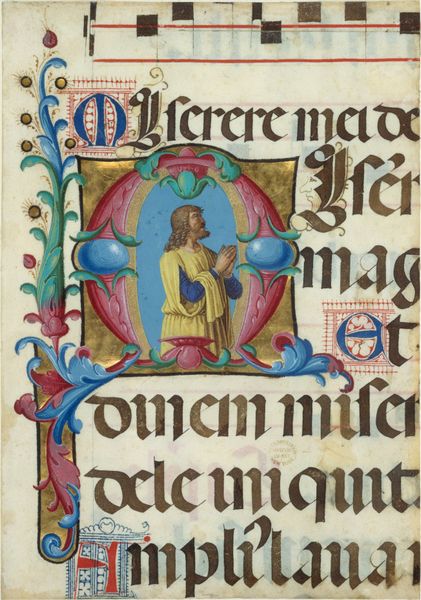 Miserere mei de
Misér
mag
Et
dinem miser
dele iniquit
Ampli⁹ lava